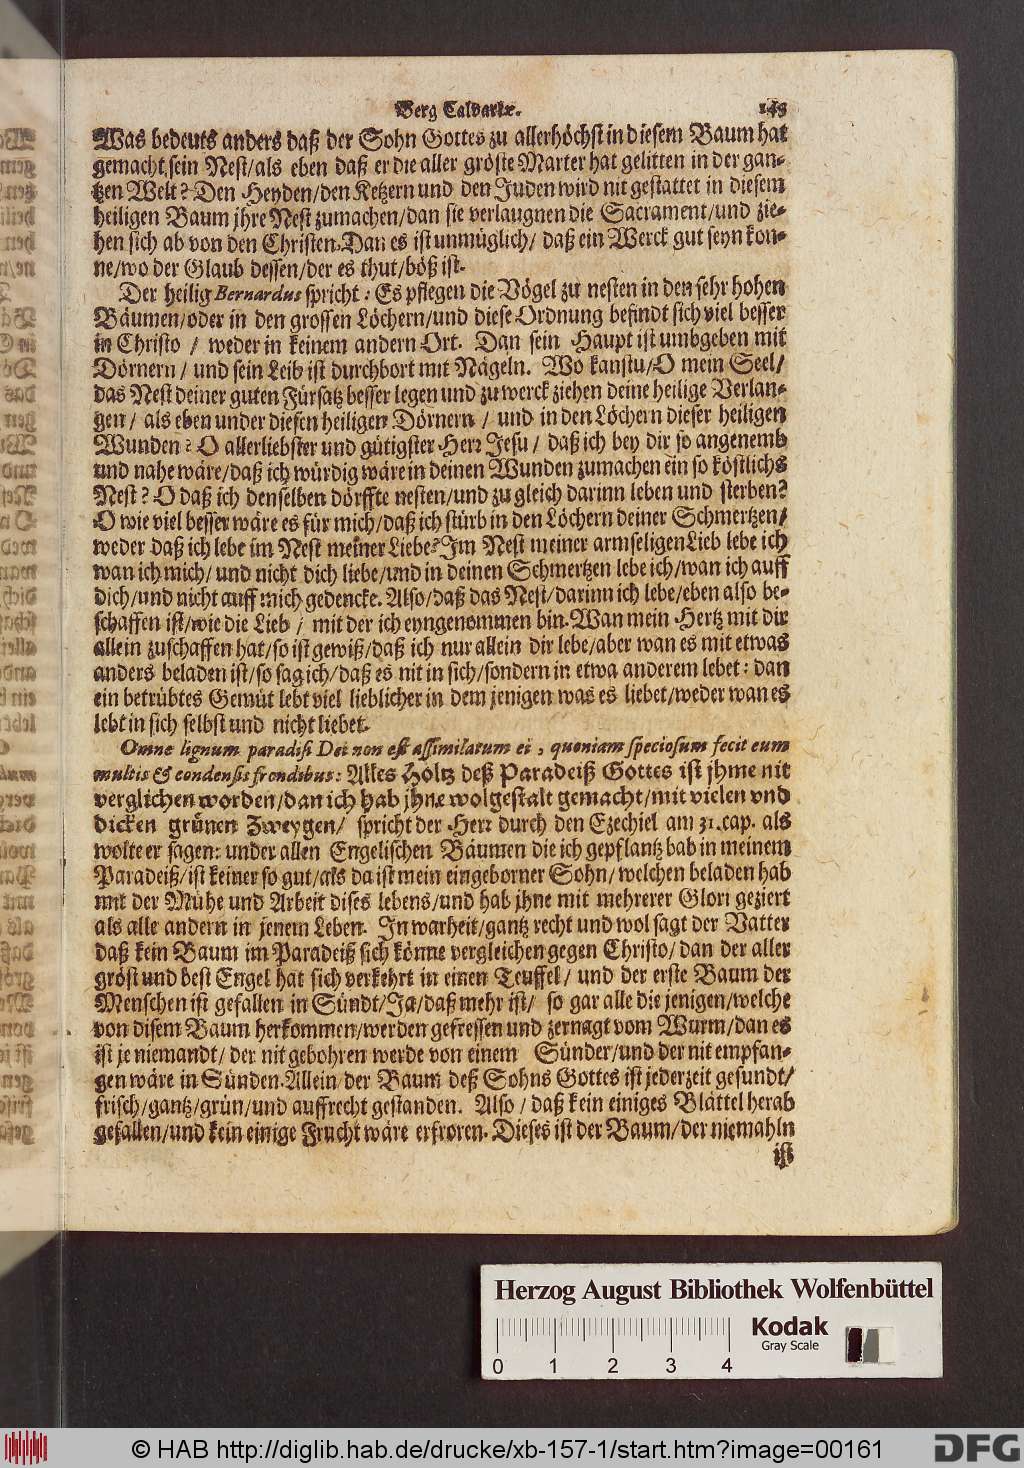 Berg Calvariæ. 149
Was bedeuts anders daß der Sohn Gottes zu allerhöchst in diesem Baum hat
gemacht sein Nest/als eben daß er die aller gröste Marter hat gelitten in der gan-
tzen Welt? Den Heyden/den Ketzern und den Juden wird nit gestattet in diesem
heiligen Baum jhre Nest zumachen/dan sie verlaugnen die Sacrament/und zie-
hen sich ab von den Christen. Dan es ist unmüglich/ daß ein Werck gut seyn kon-
ne/wo der Glaub dessen/der es thut/böß ist.
Der heilig Bernardus spricht: Es pflegen die Vögel zu nesten in den sehr hohen
Bäumen/oder in den grossen Löchern/und diese Ordnung befindt sich viel besser
in Christo / weder in keinem andern Ort. Dan sein Haupt ist umbgeben mit
Dörnern/ und sein Leib ist durchbort mit Nägeln. Wo kanstu/O mein Seel/
das Nest deiner guten Fürsatz besser legen und zu werck ziehen deine heilige Verlan-
gen/ als eben under diesen heiligen Dörnern / und in den Löchern dieser heiligen
Wunden? O allerliebster und gütigster Herr Jesu/ daß ich bey dir so angenemb
und nahe wäre/daß ich würdig wäre in deinen Wunden zumachen ein so köstlichs
Nest? O daß ich denselben dörffte nesten/und zugleich darinn leben und sterben?
O wie viel besser wäre es für mich/daß ich stürb in den Löchern deiner Schmertzen/
weder daß ich lebe im Nest meiner Liebe? Im Nest meiner armseligen Lieb lebe ich
wan ich mich/ und nicht dich liebe/und in deinen Schmertzen lebe ich/wan ich auff
dich/und nicht auff mich gedencke. Also/daß das Nest/darinn ich lebe/eben also be-
schaffen ist/wie die Lieb / mit der ich eyngenommen bin. Wan mein Hertz mit dir
allein zuschaffen hat/so ist gewiß/daß ich nur allein dir lebe/aber wan es mit etwas
anders beladen ist/so sag ich/daß es nit in sich/sondern in etwa anderem lebet: dan
ein betrübtes Gemüt lebt viel lieblicher in dem jenigen was es liebet/weder wan es
lebt in sich selbst und nicht liebet.
Omne lignum paradisi Dei non est assimilatum ei, quoniam speciosum fecit eum
multis & condensis frondibus: Alles Holtz deß Paradeiß Gottes ist jhme nit
verglichen worden/dan ich hab jhne wolgestalt gemacht/mit vielen vnd
dicken grünen Zweygen/ spricht der Herr durch den Ezechiel am 31. cap. als
wolte er sagen: under allen Engelischen Bäumen die ich gepflantz hab in meinem
Paradeiß/ist keiner so gut/als da ist mein eingeborner Sohn/welchen beladen hab
mit der Mühe und Arbeit dises lebens/und hab jhne mit mehrerer Glori geziert
als alle andern in jenem Leben. In warheit/gantz recht und wol sagt der Vatter
daß kein Baum im Paradeiß sich könne vergleichen gegen Christo/dan der aller
gröst und best Engel hat sich verkehrt in einen Teuffel/ und der erste Baum der
Menschen ist gefallen in Sündt/Ja/daß mehr ist/ so gar alle die jenigen/welche
von disem Baum herkommen/werden gefressen und zernagt vom Wurm/dan es
ist je niemandt/ der nit gebohren werde von einem Sünder/und der nit empfan-
gen wäre in Sünden. Allein der Baum deß Sohns Gottes ist jederzeit gesundt/
frisch/gantz/grün/und auffrecht gestanden. Also / daß kein einiges Blättel herab
gefallen/und kein einige Frucht wäre erfroren. Dieses ist der Baum/der niemahln
ist
Herzog August Bibliothek Wolfenbüttel
Kodak
Gray Scale
0 1 2 3 4
© HAB http://diglib.hab.de/drucke/xb-157-1/start.htm?image=00161
DFG